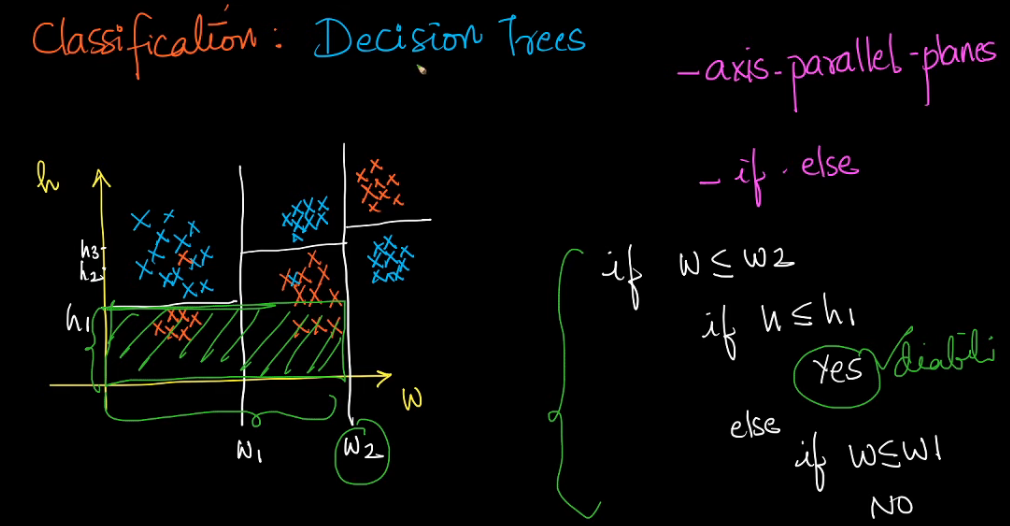 Classification: Decision Trees
- axis-parallel-planes
- if-else
h
h3
h2
h1
w
w1
w2
if w ≤ w2
if h ≤ h1
Yes diabiti
else
if w ≤ w1
NO